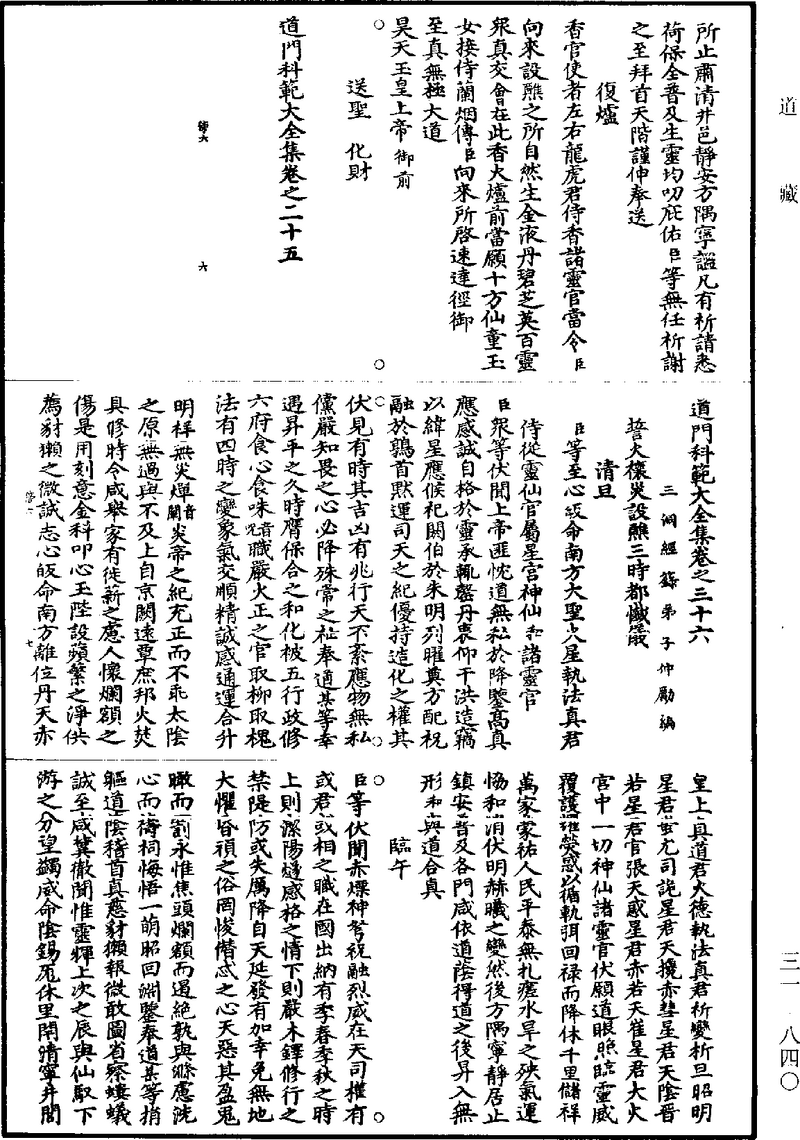 道藏
三一·八四〇
所止肅清井邑靜安方隅寧謐凡有祈請悉
荷保全普及生靈均叨庇佑臣等無任祈謝
之至拜首天階謹伸奉送
復爐
香官使者左右龍虎君侍香諸靈官當令臣
向來設醮之所自然生金液丹碧芝英百靈
眾真交會在此香火爐前當願十方仙童玉
女接侍蘭烟傳臣向來所啓速達徑御
至真無極大道
昊天玉皇上帝御前
送聖 化財
道門科範大全集卷之二十五
六
道門科範大全集卷之二十六
三洞經籙弟子仲勵編
誓火禳災設醮三時都懺儀
清旦
臣等至心皈命南方大聖火星執法真君
侍從靈仙官屬星宮神仙和諸靈官
臣眾等伏聞上帝匪忱道無私於降鑒高真
應感誠自格於靈承輒罄丹衷仰干洪造竊
以緯星應候祀閼伯於朱明列曜奠方配祝
融於鶉首默運司天之紀優持造化之權其
伏見有時其吉凶有兆行天不紊應物無私
儻嚴知畏之心必降殊常之祉奉道某等幸
遇昇平之久時膺保合之和化被五行政修
六府食心食味咮音職嚴火正之官取柳取槐
法有四時之變象氣交順精誠感通運合升
明祥無炎燀音闡炎帝之紀充正而不乖太陰
之原無過與不及上自京闕遠覃庶邦火焚
具修時令咸舉家有徙薪之慮人懷爛額之
傷是用刻意金科叩心玉陛設蘋蘩之淨供
薦豺獺之微誠志心皈命南方離位丹天赤
七
皇上真道君大德執法真君析變析旦昭明
星君蚩尤司詭星君天攙赤彗星君天陰晉
若星君官張天惑星君赤若天雀星君大火
宮中一切神仙諸靈官伏願道眼照臨靈威
覆護罹熒惑以循軌弭回祿而降休千里儲祥
萬家蒙祐人民平泰無札瘥水旱之殃氣運
恊和消伏明赫曦之變然後方隅寧靜居止
鎮安普及各門咸依道蔭得道之後昇入無
形和與道合真
臨午
臣等伏聞赤熛神兮祝融烈威在天司權有
或君或相之職在國出納有季春季秋之時
上則潔陽燧感格之情下則嚴木鐸修行之
禁隄防或失厲降自天延發有加幸免無地
大懼昏禎之俗罔悛僭忒之心天惡其盈鬼
瞰而罰永惟焦頭爛額而遏絕孰與滌慮洗
心而禱祠悔悟一萌昭回淵鑒奉道某等捎
軀道蔭稽首真慈豺獺報微敢圖省察螻蟻
誠至咸冀徹聞惟靈輝上次之辰與仙馭下
游之分望蠲威命陰錫冞休里閈清寧井閭